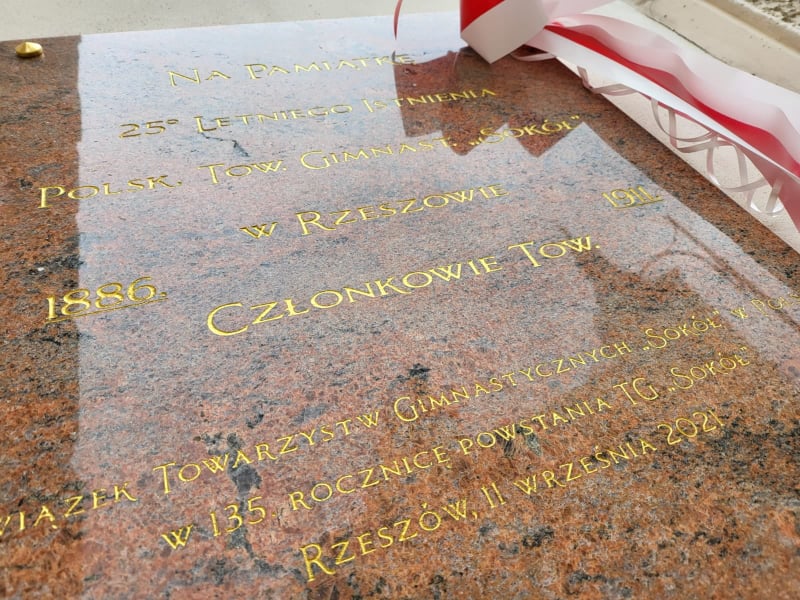 Na Pamiątkę
25º Letniego Istnienia
Polsk. Tow. Gimnast. „Sokół”
w Rzeszowie
1886. 1911.
Członkowie Tow.
Towarzystw Gimnastycznych „Sokół” w
w 135. rocznicę powstania TG „Sokół”
Rzeszów, 11 września 2021